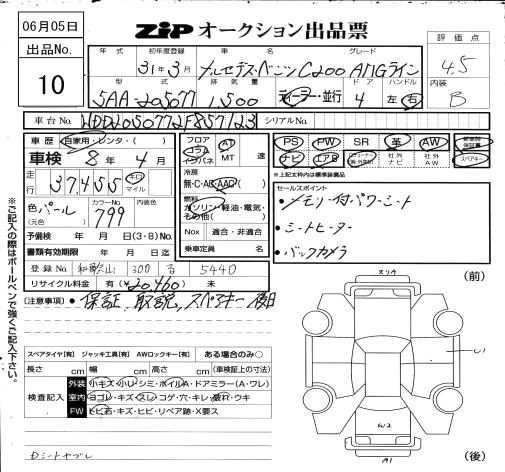 06月05日
ZIP オークション出品票
出品No.
10
年式 初年度登録 車名 グレード
31年3月 メルセデス・ベンツ C200 AMGライン
型式 排気量 ドア ハンドル
5AA-205077 1,500 ディーラー・並行 4 左・右
評価点
4.5
内装
B
車台No. WDD2050772F857123 シリアルNo.
車歴 自家用・レンタ・( )
車検 8年4月
走行 37,455 キロ マイル
色 パール カラーNo. 799 内装色
(元色)
予備検 年 月 日(3・8)No.
書類有効期限 年 月 日迄
登録No. 和歌山 300 る 5440
リサイクル料金 有(¥20,460) 未
フロア コラム インパネ AT MT 速
冷房 無・C・AC・AAC
燃料 ガソリン・軽油・電気・その他( )
Nox 適合・非適合
乗車定員 名
PS PW SR 革 AW 新車時保証書
ナビ エアB 社外ナビ 社外AW スペアキー
※上記太枠内は標準装備品
セールスポイント
・メモリー付パワーシート
・シートヒーター
・バックカメラ
[注意事項] ・保証、取説、スペアキー後日
※ご記入の際はボールペンで強くご記入下さい。
スペアタイヤ[有] ジャッキ工具[有] AWロックキー[有] ある場合のみ○
長さ cm 幅 cm 高さ cm (車検証上の寸法)
検査記入
外装 小キズ・小U・シミ・ホイルA・ドアミラー(A・ワレ)
室内 ヨゴレ・キズ・スレ・コゲ・穴・キレ・破れ・ウキ
FW トビ石・キズ・ヒビ・リペア跡・X要ス
Dシートヤブレ
(前)
スリA
U1
W2
A1
(後)